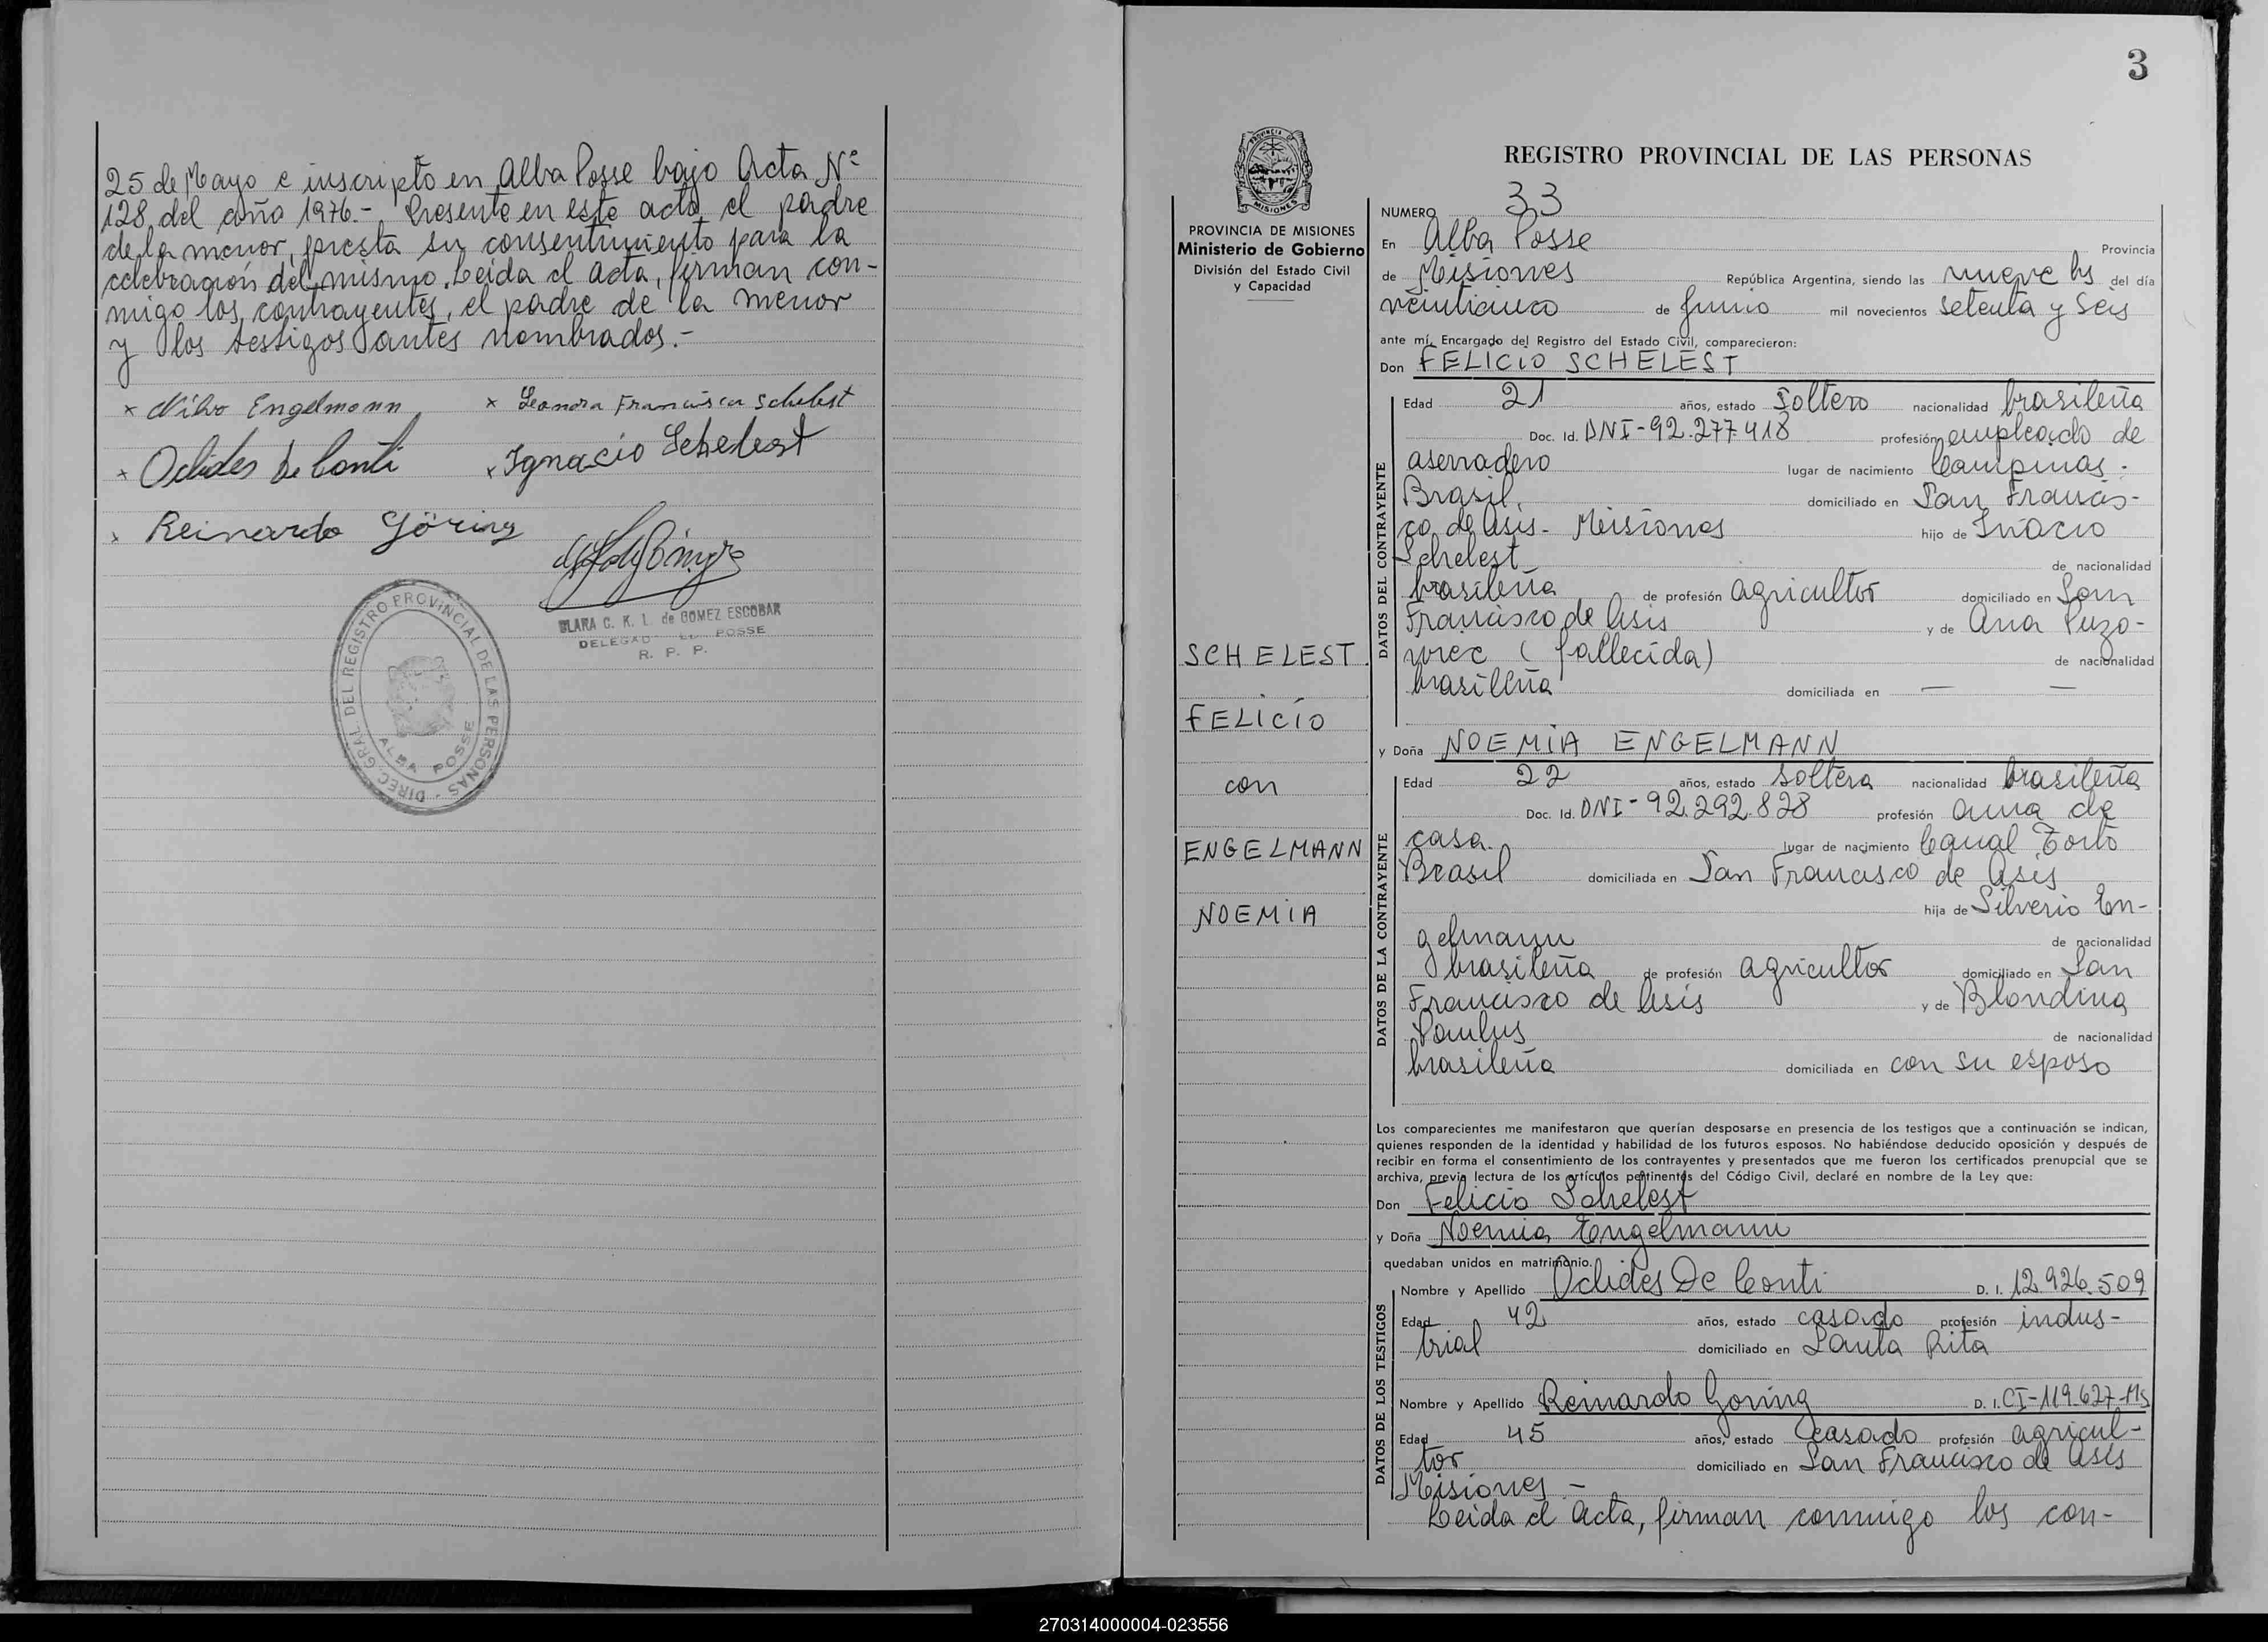 25 de Mayo e inscripto en Alba Posse bajo Acta Nº
128 del año 1976.- Presente en este acto, el padre
de la menor, presta su consentimiento para la
celebración del mismo. Leida el Acta, firman con-
migo los contrayentes, el padre de la menor
y los testigos antes nombrados.-
x Nilvo Engelmann x Leonora Francisca Schelest
x Oclides De Conti x Ignacio Schelest
x Reinardo Göring
CLARA C. K. L. de GOMEZ ESCOBAR
POSSE
R. P. P.
DIREC. GRAL. DEL REGISTRO PROVINCIAL DE LAS PERSONAS -
ALBA POSSE
3
PROVINCIA DE
MISIONES
PROVINCIA DE MISIONES
Ministerio de Gobierno
División del Estado Civil
y Capacidad
SCHELEST
FELICIO
con
ENGELMANN
NOEMIA
REGISTRO PROVINCIAL DE LAS PERSONAS
NUMERO 33
En Alba Posse Provincia
de Misiones República Argentina, siendo las nueve hs del día
veinticinco de Junio mil novecientos setenta y seis
ante mí, Encargado del Registro del Estado Civil, comparecieron:
Don FELICIO SCHELEST
DATOS DEL CONTRAYENTE
Edad 21 años, estado soltero nacionalidad brasileña
Doc. Id. DNI-92.277.418 profesión empleado de
aserradero lugar de nacimiento Campinas.
Brasil. domiciliado en San Francis-
co de Asis- Misiones hijo de Inacio
Schelest de nacionalidad
brasileña de profesión agricultor domiciliado en San
Francisco de Asis y de Ana Puzo-
wiec (fallecida) de nacionalidad
brasileña domiciliada en — —
y Doña NOEMIA ENGELMANN
DATOS DE LA CONTRAYENTE
Edad 22 años, estado soltera nacionalidad brasileña
Doc. Id. DNI-92.292.828 profesión ama de
casa. lugar de nacimiento Canal Torto
Brasil domiciliada en San Francisco de Asis
hija de Silverio En-
gelmann de nacionalidad
brasileña de profesión agricultor domiciliado en San
Francisco de Asis y de Blondina
Paulus de nacionalidad
brasileña domiciliada en con su esposo
Los comparecientes me manifestaron que querían desposarse en presencia de los testigos que a continuación se indican,
quienes responden de la identidad y habilidad de los futuros esposos. No habiéndose deducido oposición y después de
recibir en forma el consentimiento de los contrayentes y presentados que me fueron los certificados prenupcial que se
archiva, previa lectura de los artículos pertinentes del Código Civil, declaré en nombre de la Ley que:
Don Felicio Schelest
y Doña Noemia Engelmann
quedaban unidos en matrimonio.
DATOS DE LOS TESTIGOS
Nombre y Apellido Oclides De Conti D. I. 12.926.509
Edad 42 años, estado casado profesión indus-
trial domiciliado en Santa Rita
Nombre y Apellido Reinardo Goring D. I. CI-119.627-Ms
Edad 45 años, estado casado profesión agricul-
tor domiciliado en San Francisco de Asis
Misiones -
Leida el Acta, firman conmigo los con-
270314000004-023556